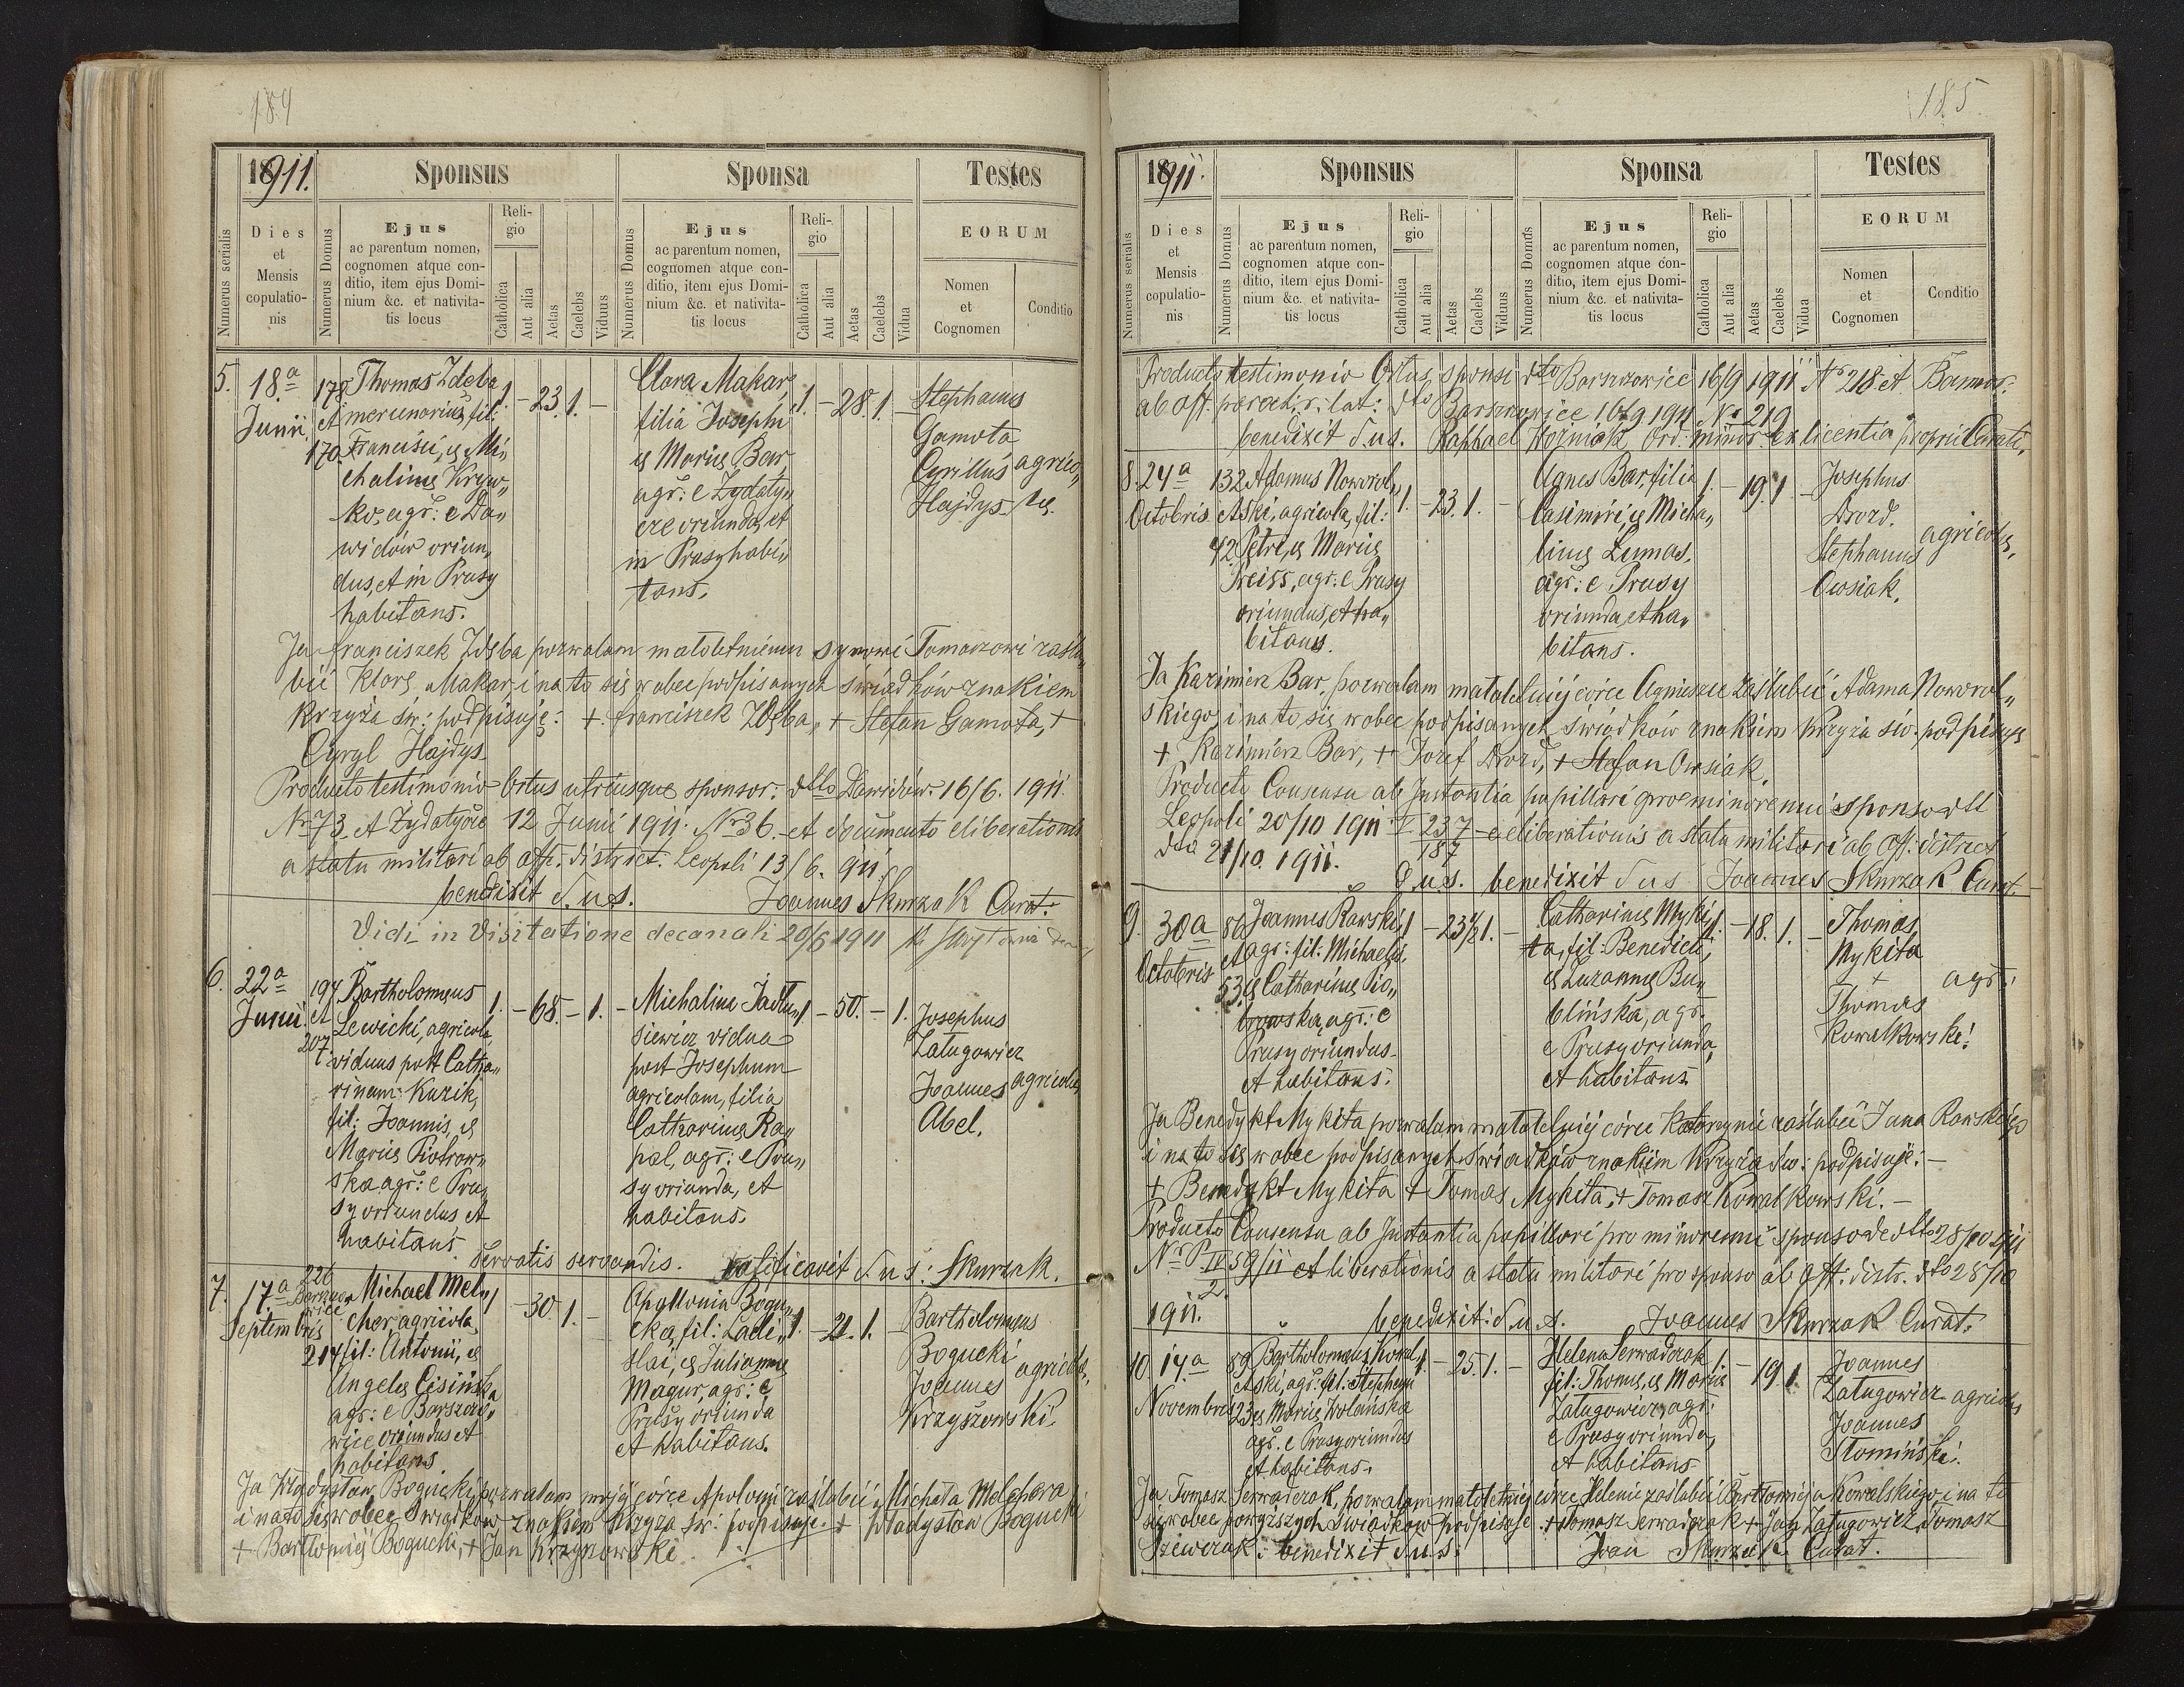 184
1911.
Sponsus
Sponsa
Testes
Numerus serialis
Dies
et
Mensis
copulatio-
nis
Numerus Domus
Ejus
ac parentum nomen,
cognomen atque con-
ditio, item ejus Domi-
nium &c. et nativita-
tis locus
Reli-
gio
Catholica
Aut alia
Aetas
Caelebs
Viduus
Numerus Domus
Ejus
ac parentum nomen,
cognomen atque con-
ditio, item ejus Domi-
nium &c. et nativita-
tis locus
Reli-
gio
Catholica
Aut alia
Aetas
Caelebs
Vidua
EORUM
Nomen
et
Cognomen
Conditio
5.
18.a
Junii
178
et
170
Thomas Zdeba
mercenarius, fil:
Francisci, et Mi„
chalinæ Kryw„
ko, agr: e Da„
widów oriun„
dus, et in Prusy
habitans.
1. - 23. 1. -
Clara Makar,
filia Josephi
et Mariæ Bar,
agr: e Żydaty„
cze oriunda, et
in Prusy habi„
tans.
1. - 28. 1. -
Stephanus
Gamota
Cyrillus
Hajdys
agrico„
læ.
Ja Franciszek Zdęba pozwalam małoletniemu synowi Tomaszowi zaślu„
bić Klarę Makar, i na to się wobec podpisanych świadków znakiem
Krzyża św: podpisuję: + Franciszek Zdęba, + Stefan Gamota, +
Cyryl Hajdys.
Producto testimonio Ortus utriusque sponsor: dtto Dawidów 16/6. 1911.
Nr 73. et Żydatycze 12 Junii 1911. Nr 36. et documento eliberationis
a statu militari ab off. district. Leopoli 13/6. 911.
benedixit S. us. Joannes Skurzak Curat.
Vidi in Visitatione decanali 20/6 1911
6.
22a
Junii.
194
et
207
Bartholomæus
Lewicki, agricola,
viduus post Catha„
rinam Kuzik,
fil: Joannis, et
Mariæ Piotrow„
ska agr: e Pru„
sy oriundus et
habitans.
1. - 68. - 1. -
Michalina Jadłu„
siewicz vidua
post Josephum
agricolam, filia
Catharinæ Ra„
pal, agr: e Pru„
sy oriunda, et
habitans.
1 - 50. - 1.
Josephus
Załugowicz
Joannes
Abel.
agricolæ
Servatis servandis. ratificavit S us: Skurzak.
7.
17a
Septembris
226
Barszczo
wice
214
Michael Mel„
cher, agricola,
fil: Antonii, et
Angelæ Cisińska
agr: e Barszczo„
wice oriundus et
habitans
1 - 30. 1. -
Apollonia Bogu„
cka, fil: Ladi„
slai, et Julianæ
Magur, agr: e
Prusy oriunda
et habitans.
1. - 21. 1. -
Bartholomæus
Bogucki
Joannes
Krzyszowski.
agricolæ.
Ja Władysław Bogucki pozwalam mojej córce Apolonii zaślubić Michała Melchera
i na to się wobec świadków znakiem Krzyża św: podpisuję. + Władysław Bogucki
+ Bartłomiej Bogucki, + Jan Krzyszowski.
185
1911.
Sponsus
Sponsa
Testes
Numerus serialis
Dies
et
Mensis
copulatio-
nis
Numerus Domus
Ejus
ac parentum nomen,
cognomen atque con-
ditio, item ejus Domi-
nium &c. et nativita-
tis locus
Reli-
gio
Catholica
Aut alia
Aetas
Caelebs
Viduus
Numerus Domus
Ejus
ac parentum nomen,
cognomen atque con-
ditio, item ejus Domi-
nium &c. et nativita-
tis locus
Reli-
gio
Catholica
Aut alia
Aetas
Caelebs
Vidua
EORUM
Nomen
et
Cognomen
Conditio
Producto testimonio Ortus sponsi dto Barszczowice 16/9 1911 Nr 218 et
ab off. lat: dto Barszczowice 16/9 1911 Nr 219
benedixit S. us. Raphael Woźniak Ord: minor ex licentia proprii Curati.
8.
24a
Octobris
132
et
42
Adamus Noworol„
ski, agricola, fil:
Petri, et Mariæ
Preiss, agr: e Prusy
oriundus, et ha„
bitans.
1. - 23. 1. -
Agnes Bar, filia
Casimiri, et Micha„
linæ Lumas,
agr: e Prusy
oriunda, et ha„
bitans.
1. - 19. 1 -
Josephus
Drozd.
Stephanus
Owsiak.
agricolæ.
Ja Kazimierz Bar, pozwalam małoletniej córce Agnieszce zaślubić Adama Noworol„
skiego, i na to się wobec podpisanych świadków znakiem Krzyża św. podpisuję
+ Kazimierz Bar, + Józef Drozd, + Stefan Owsiak.
Producto Consensu ab Instantia pupillari pro minorenni sponso dtt
Leopoli 20/10 1911 237/187 eliberationis a statu militari ab off: district
dto 21/10. 1911.
S. us. benedixit S us Joannes Skurzak Curat.
9.
30a
Octobris
86
et
53
Joannes Rawski,
agr: fil: Michaelis,
et Catharinæ Pio„
trowska, agr: e
Prusy oriundus
et habitans.
1 - 23 1/2 1. -
Catharina Myki„
ta, fil: Benedicti,
et Zuzannæ Bu„
blińska, agr.
e Prusy oriunda,
et habitans.
1. - 18. 1. -
Thomas
Mykita
+
Thomas
Kowalkowski.
agr:
Ja Benedykt Mykita pozwalam małoletniej córce Katarzynie zaślubić Jana Rawskiego
i na to się wobec podpisanych świadków znakiem Krzyża św: podpisuję: -
+ Benedykt Mykita + Tomas Mykita, + Tomasz Kowalkowski. -
Producto Consensu ab Instantia pupillari pro minorenni sponso de dtto 28/10 911
Nr P IV 59/11 et liberationis a statu militari pro sponso ab off: distr. dto 28/10
2.
1911. benedixit: S. us. Joannes Skurzak Curat.
10.
14.a
Novembris
89
et
23
Bartholomæus Kowal„
ski, agr: fil: Stephani
et Mariæ Wolańska
agr. e Prusy oriundus
et habitans.
1. - 25 1. -
Helena Serwadczak
fil: Thomæ, et Mariæ
Załugowicz, agr:
e Prusy oriunda,
et habitans.
1. - 19 1.
Joannes
Załugowicz
Joannes
Słomiński.
agricolæ
Ja Tomasz Serwadczak, pozwalam małoletniej córce Helenie zaślubić Bartłomieja Kowalskiego i na to
się wobec powyższych świadków podpisuję + Tomasz Serwadczak + Jan Załugowicz, Tomasz
Szewczak. benedixit S. us. Joan Skurzak Curat.